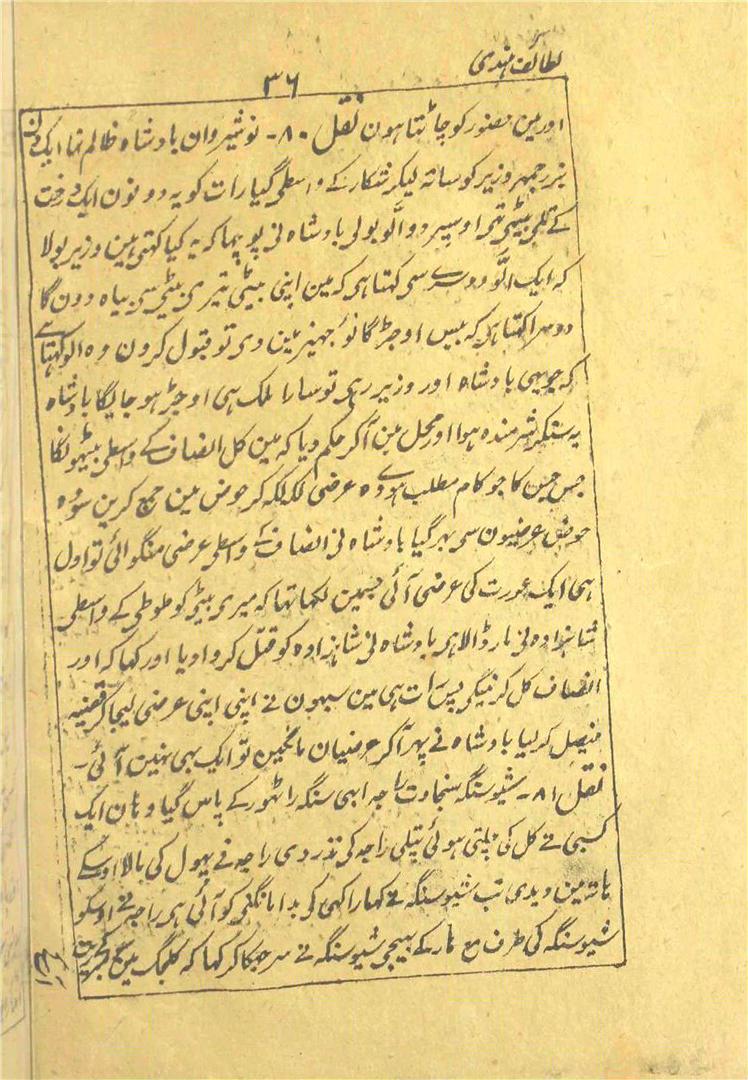 لطائف ہندی
۳۶
اور مین حضور کو چاٹتا ہون نقل ۸۰- نوشیروان بادشاہ ظالم تہا ایک دن
بزرجمہر وزیر کو ساتہ لیکر شکار کے واسطی گیا رات کو یہ دونون ایک درخت
کے تلی بیٹہی تہی اوسپر دو الّو بولی بادشاہ نی پوچہا کہ یہ کیا کہتی ہین وزیر بولا
کہ ایک الّو دوسرے سی کہتا ہی کہ مین اپنی بیٹی تیری بیٹی سی بیاہ دون گا
دوسرا کہتا ہی کہ بیس اوجڑ گانوٗ جہیز مین دی تو قبول کرون وہ الّو کہتا ہے
کہ جو یہی بادشاہ اور وزیر رہی تو سارا ملک ہی اوجڑ ہو جایگا بادشاہ
یہ سنکر شرمندہ ہوا اور محل مین آکر حکم دیا کہ مین کل انصاف کے واسطی بیٹہونگا
جس جس کا جو کام مطلب ہووے وہ عرضی لکہہ لکہہ کر حوض مین جمع کرین سو وہ
حوض عرضیون سی بہر گیا بادشاہ نی انصاف کے واسطی عرضی منگوائی تو اول
ہی ایک عورت کی عرضی آئی جسمین لکہا تہا کہ میری بیٹی کو طوطی کے واسطی
شاہزادہ نی مار ڈالا ہی بادشاہ نی شاہزادہ کو قتل کروا دیا اور کہا کہ اور
انصاف کل کرینگی پس رات ہی مین سبہون نے اپنی اپنی عرضی لیجا کر قضیہ
فیصل کر لیا بادشاہ نے پہر آکر عرضیان مانگین تو ایک بہی نہین آئی۔
نقل ۸۱- شیوسنگہ سنجاوت راجہ ابہی سنگہ راٹہور کے پاس گیا وہان ایک
کسبی نے کل کی چلتی ہوئی پتلی راجہ کی نذر دی راجہ نے پہول کی مالا اوسکے
ہاتہ مین دیدی تب شیوسنگہ نے کہا راکہی کی بدا مانگنی کو آئی ہی راجہ نے اوسکو
شیوسنگہ کی طرف مع ہار کے بہیجی شیوسنگہ نے سر جہکا کر کہا کہ کلجگ مین